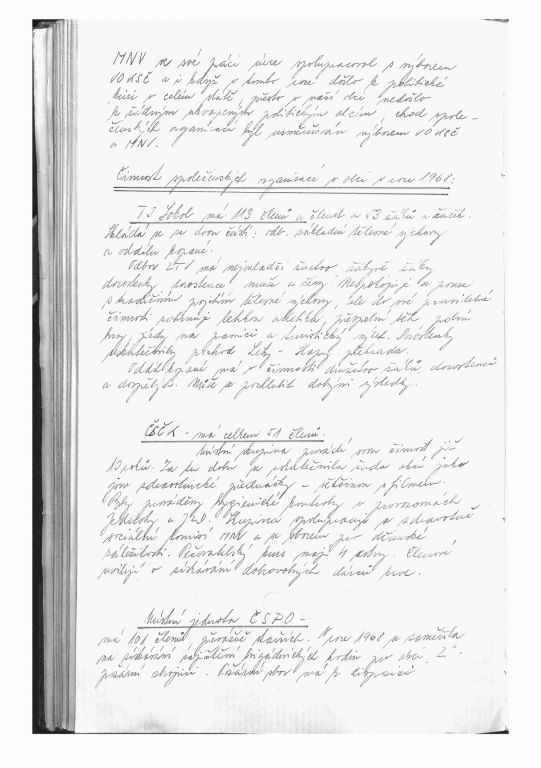 MNV ve své práci úzce spolupracoval s výborem
VO KSČ a i když v tomto roce došlo k politické
krizi v celém státě, přesto v naší obci nedošlo
k žádným ukvapeným politickým akcím, chod spole-
čenských organizací byl usměrňován výborem VO KSČ
a MNV.
Činnost společenských organizací v obci v roce 1968:
TJ Sokol má 113 členů a členek a 53 žáků a žaček.
Skládá se ze dvou částí: odb. základní tělesné výchovy
a oddílu kopané.
Odbor ZTV má nejmladší žactvo žákyně žáky
dorostenky, dorostence muže a ženy. Nespokojuje se pouze
s tradičním pojetím tělesné výchovy, ale do své pravidelné
činnosti zahrnuje lehkou atletiku, přespolní běh, polní
hry, jízdy na pramici a turistický výlet. Dorostenky
uskutečnily pochod Lety - Slapy přehrada.
Oddíl kopané má v činnosti družstvo žáků, dorostenců
a dospělých. Může se pochlubit dobrými výsledky.
ČSČK - má celkem 51 členů.
Místní skupina provádí svou činnost již
10 roků. Za tu dobu se uskutečnila řada akcí jako
jsou zdravotnické přednášky - většinou s filmem.
Byly prováděny hygienické kontroly v provozovnách
Jednoty a JZD. Skupina spolupracuje se zdravotně
sociální komisí MNV a se sborem pro občanské
záležitosti. Pečovatelský kurs mají 4 sestry. Členové
usilují o získávání dobrovolných dárců krve.
Místní jednota ČSPO -
má 101 členů převážně starších. V roce 1968 se zaměřila
na získávání zajištění brigádnických hodin pro akci "Z"
požární zbrojnici. Požární sbor má k dispozici